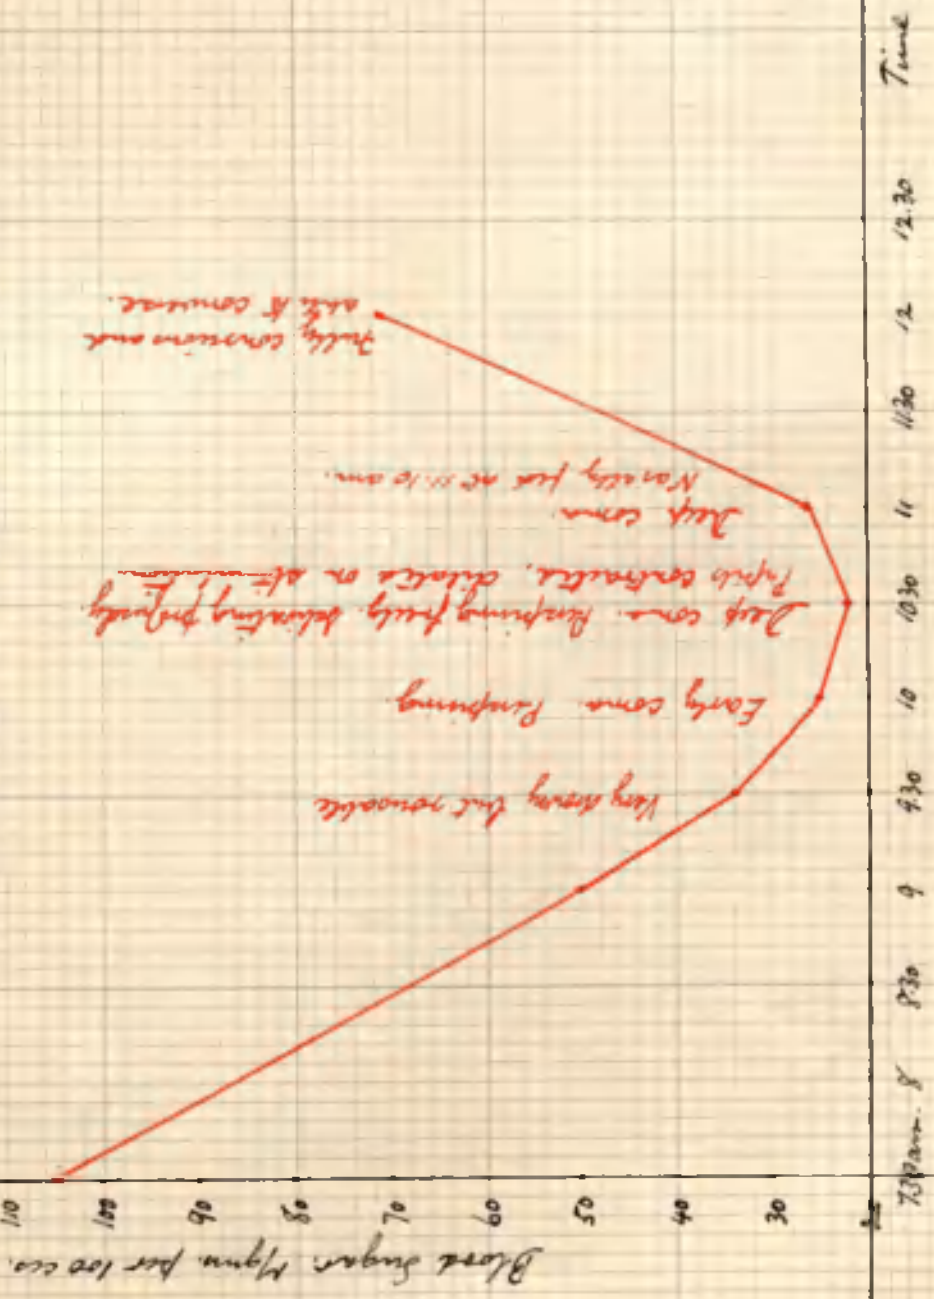 Blood Sugar. Mgms. per 100 ccs.
110
100
90
80
70
60
50
40
30
20
7.30 am. 8 8.30 9 9.30 10 10.30 11 11.30 12 12.30 Time
Very drowsy but rousable
Early coma. Perspiring.
Deep coma. Perspiring freely. Salivating profusely.
Pupils contracted, dilated on
Deep coma
Nasally fed at 11.10 am.
Fully conscious and
able to converse.